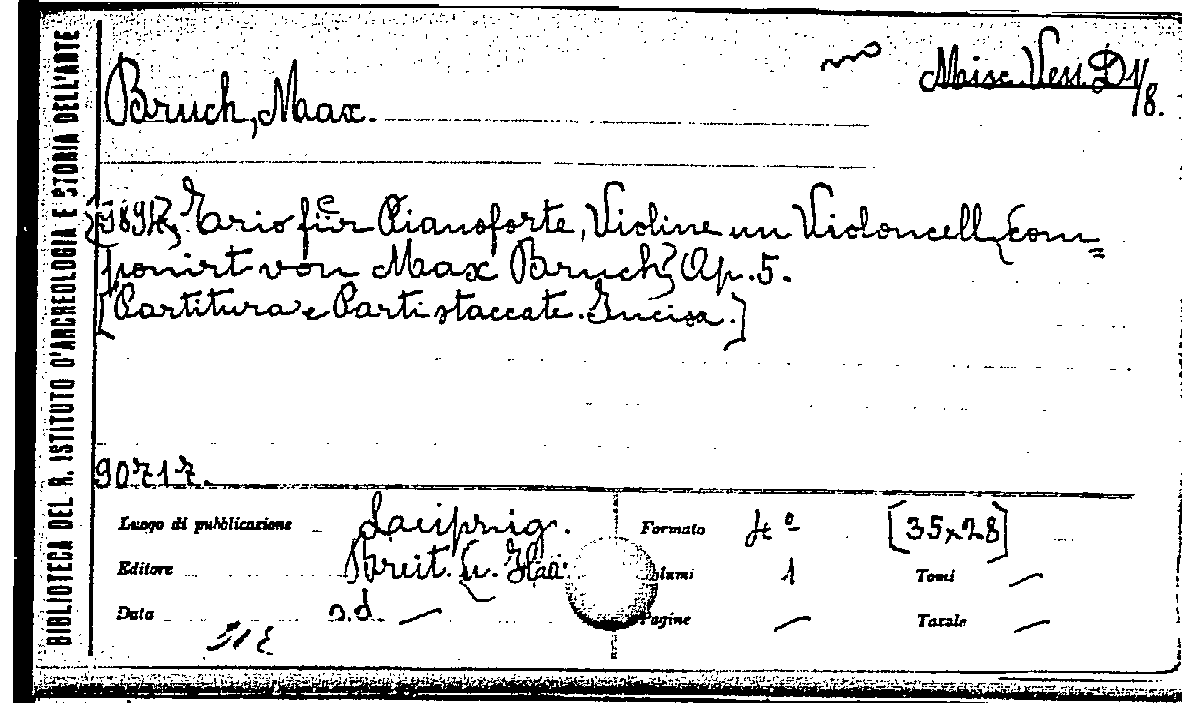 BIBLIOTECA DEL R. ISTITUTO D'ARCHEOLOGIA E STORIA DELL'ARTE
Misc. Ven. D1/8.
Bruch, Max.
Trio für Pianoforte, Violine un Violoncell, com=
ponirt von Max Bruch, Op. 5.
[Partitura e Parti staccate. Incisa.]
90717.
Luogo di pubblicazione Laeipnig. Formato 4º [35x28]
Editore Breit. u. Haa. olumi 1 Tomi —
Data s.d. — Pagine — Tavole —